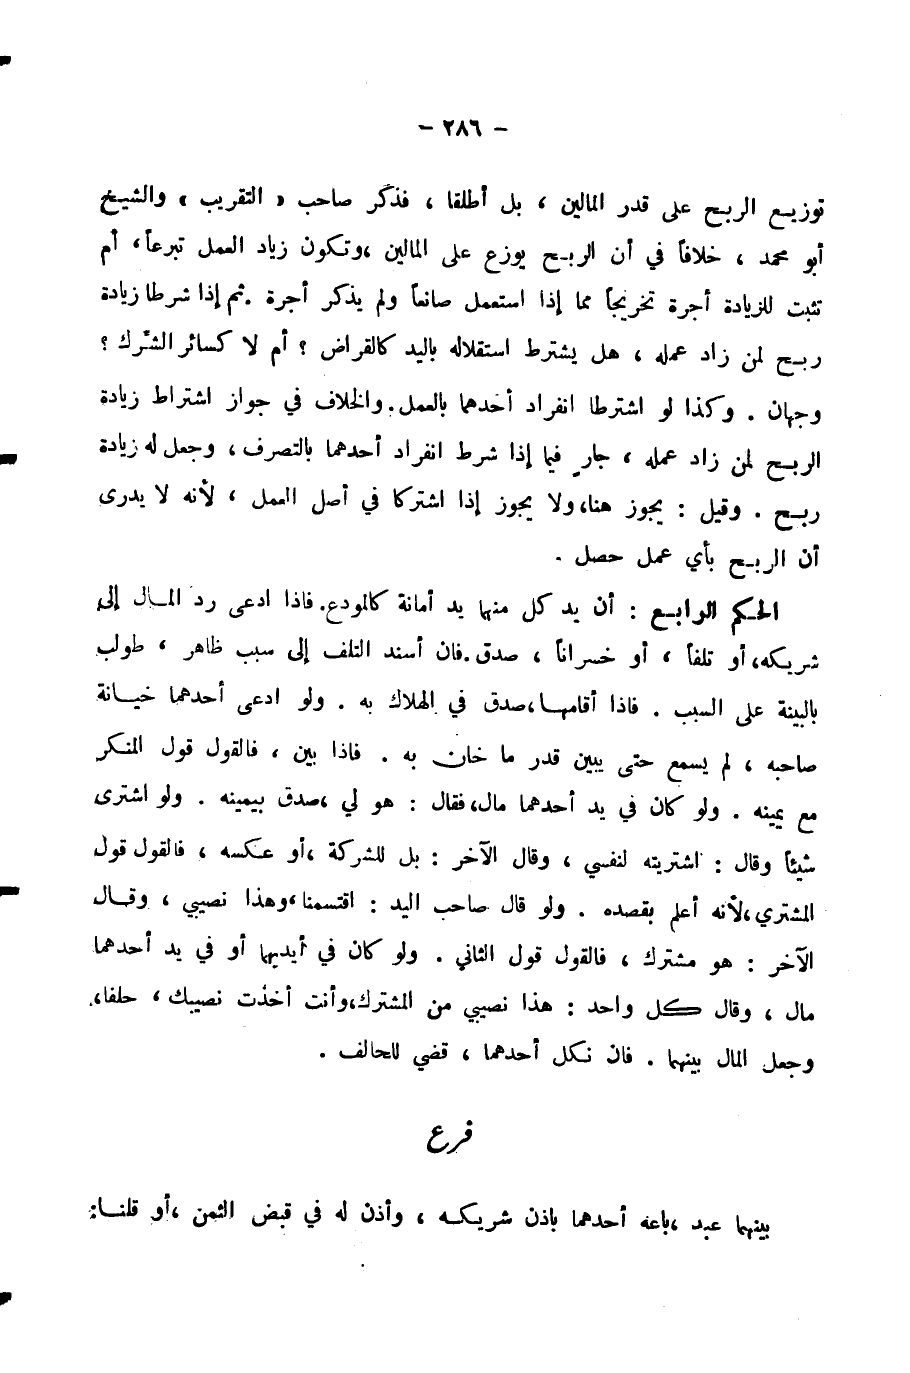 - ٢٨٦ -
توزيع الربح على قدر المالين ، بل أطلقا ، فذكر صاحب « التقريب » والشيخ
أبو محمد ، خلافاً في أن الربح يوزع على المالين ،وتكون زياد العمل تبرعاً، أم
تثبت للزيادة أجرة تخريجاً مما إذا استعمل صانعاً ولم يذكر أجرة .ثم إذا شرطا زيادة
ربح لمن زاد عمله ، هل يشترط استقلاله باليد كالقراض ؟ أم لا كسائر الشرك ؟
وجهان . وكذا لو اشترطا انفراد أحدهما بالعمل.والخلاف في جواز اشتراط زيادة
الربح لمن زاد عمله ، جارٍ فيما إذا شرط انفراد أحدهما بالتصرف ، وجعل له زيادة
ربح . وقيل : يجوز هنا،ولا يجوز إذا اشتركا في أصل العمل ، لأنه لا يدرى
أن الربح بأي عمل حصل .
الحكم الرابع : أن يد كل منهما يد أمانة كالمودع.فاذا ادعى رد المال إلى
شريكه،أو تلفاً ، أو خسراناً ، صدق.فان أسند التلف إلى سبب ظاهر ، طولب
بالبينة على السبب . فاذا أقامها،صدق في الهلاك به . ولو ادعى أحدهما خيانة
صاحبه ، لم يسمع حتى يبين قدر ما خان به . فاذا بين ، فالقول قول المنكر
مع يمينه . ولو كان في يد أحدهما مال،فقال : هو لي ،صدق بيمينه . ولو اشترى
شيئاً وقال : اشتريته لنفسي ، وقال الآخر : بل للشركة ،أو عكسه ، فالقول قول
المشتري،لأنه أعلم بقصده . ولو قال صاحب اليد : اقتسمنا،وهذا نصيبي ، وقال
الآخر : هو مشترك ، فالقول قول الثاني . ولو كان في أيديهما أو في يد أحدهما
مال ، وقال كل واحد : هذا نصيبي من المشترك،وأنت أخذت نصيبك ، حلفا،
وجعل المال بينهما . فان نكل أحدهما ، قضي للحالف .
فرع
بينهما عبد ،باعه أحدهما باذن شريكه ، وأذن له في قبض الثمن ،أو قلنا: